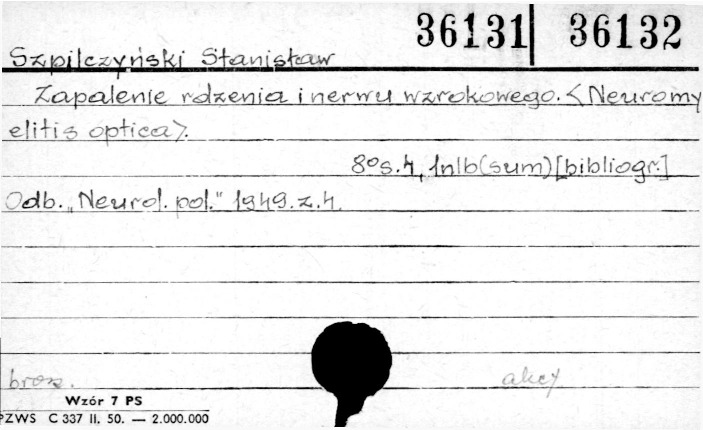 36131 | 36132
Szpilczyński Stanisław
Zapalenie rdzenia i nerwu wzrokowego. <Neuromy
elitis optica>.
8° s. 4, 1nlb (sum) [bibliogr.]
Odb. "Neurol. pol." 1949. z. 4.
brosz.
akcy
Wzór 7 PS
PZWS C 337 II. 50. — 2.000.000